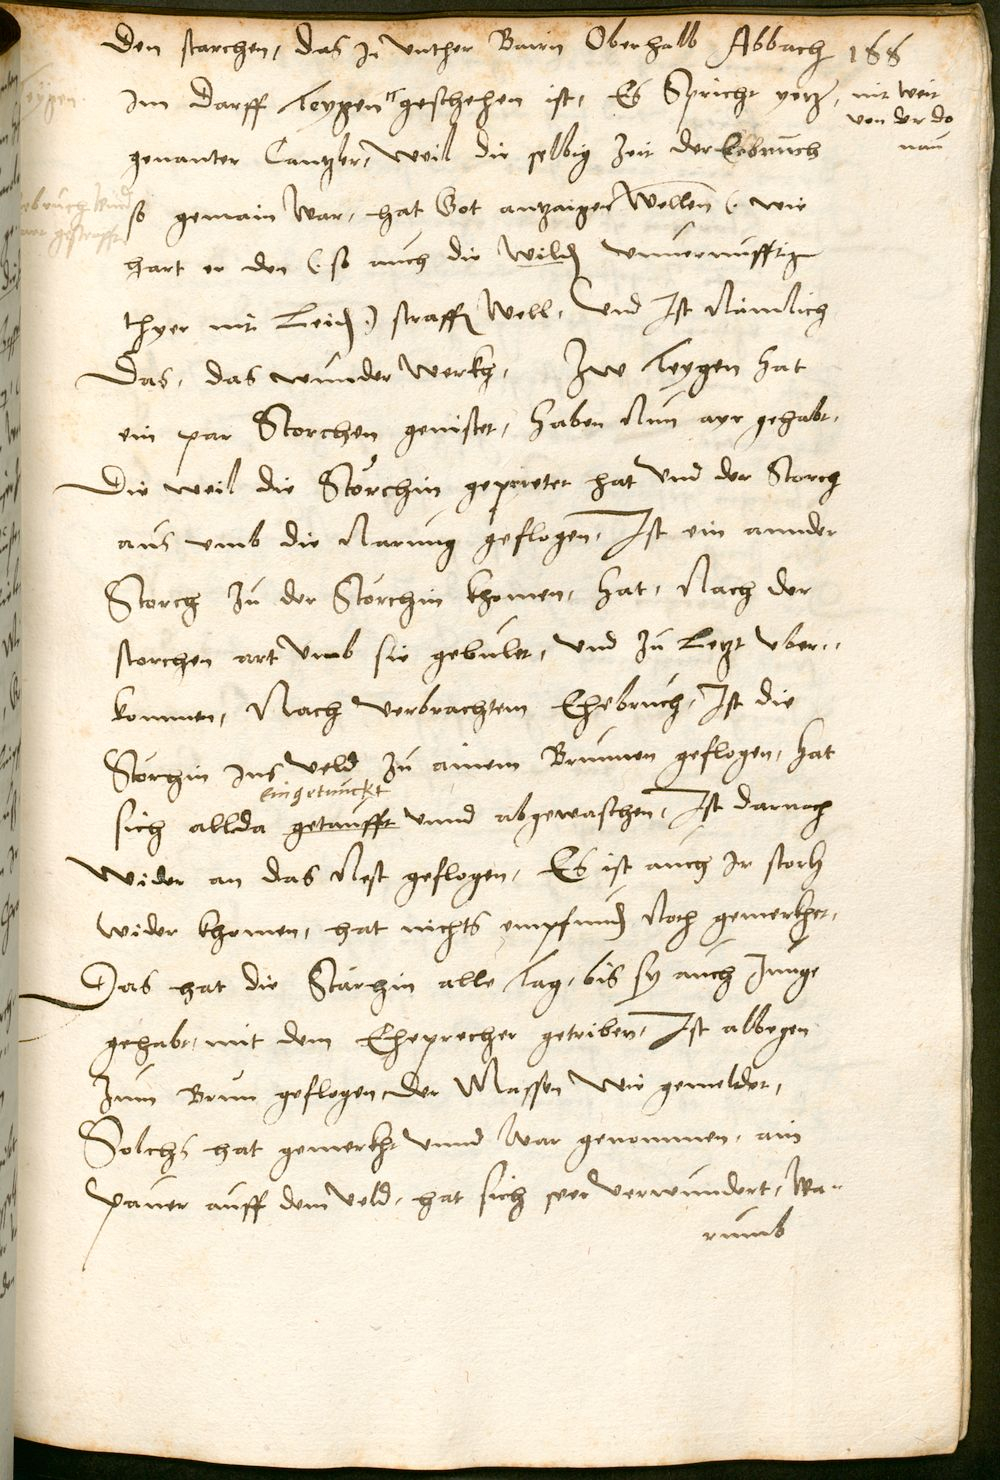 den starchen, das in vnther Bairn Oberhalb Abbach 188
Im Darff Teygen geschehen ist, Es Spricht yetz
nit weit
von der do
nau
Teygen
genanter Cantzler, weil die selbig Zeit der Eebruch
so gemain war, hat Got antzaigen wellen (: wie
hart er den (: so auch die wilden vnuernufftige
thyer nit Leiden :) straffen well, Vnd Ist Nämlich
Das, das wunder werkh, Zw Teygen hat
ein par Storchen genistet, haben Nun ayr gehabt,
Die weil die Störchin geprietet hat Vnd der Storch
aus vmb die Narung geflogen, Ist ein annder
Storch Zu der Störchin khomen, hat, Nach der
storchen art Vmb sie gebulet, Vnd Zu Letzt vber-
kommen, Nach verbrachtem Ehebruch, Ist die
Storchin Ins veld Zu ainem Brunnen geflogen, hat
eingetunckt
sich allda getaufft vnnd abgewaschen, Ist darnach
wider an das Nest geflogen, Es ist auch Ir storch
wider khomen, hat nichts empfunden Noch gemerkhet,
Das hat die Starchin alle Tag, bis sy auch Junge
gehabt, mit dem Eheprecher getriben, Ist albegen
Zum Brun geflogen der Massen wie gemeldet,
Solchs hat gemerkht Vnnd war genommen, ain
Pauer auff dem Veld, hat sich seer verwundert, Wa-
rumb